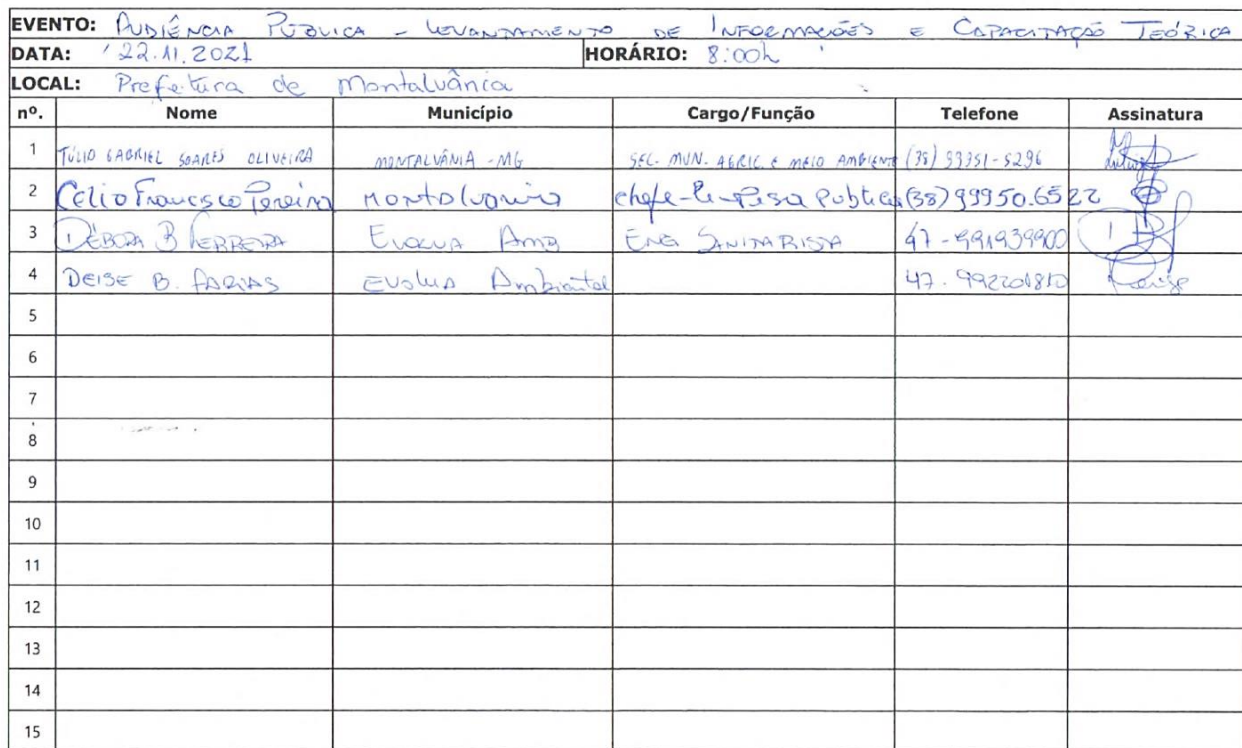 EVENTO: AUDIÊNCIA PÚBLICA - LEVANTAMENTO DE INFORMAÇÕES E CAPACITAÇÃO TEÓRICA
DATA: 22.11.2021 HORÁRIO: 8:00h
LOCAL: Prefeitura de Montalvânia
nº. Nome Município Cargo/Função Telefone Assinatura
1 TÚLIO GABRIEL SOARES OLIVEIRA MONTALVÂNIA - MG SEC. MUN. AGRIC. E MEIO AMBIENTE (38) 99951-5296
2 Celio Francisco Pereira Montalvania chefe Publica (38) 99950.6522
3 DÉBORA B FERREIRA EVOLUA Amb ENG SANITARISTA 47-991939900
4 DEISE B. FARIAS EVOLUA Ambiental 47. 992201810 Deise
5
6
7
8
9
10
11
12
13
14
15